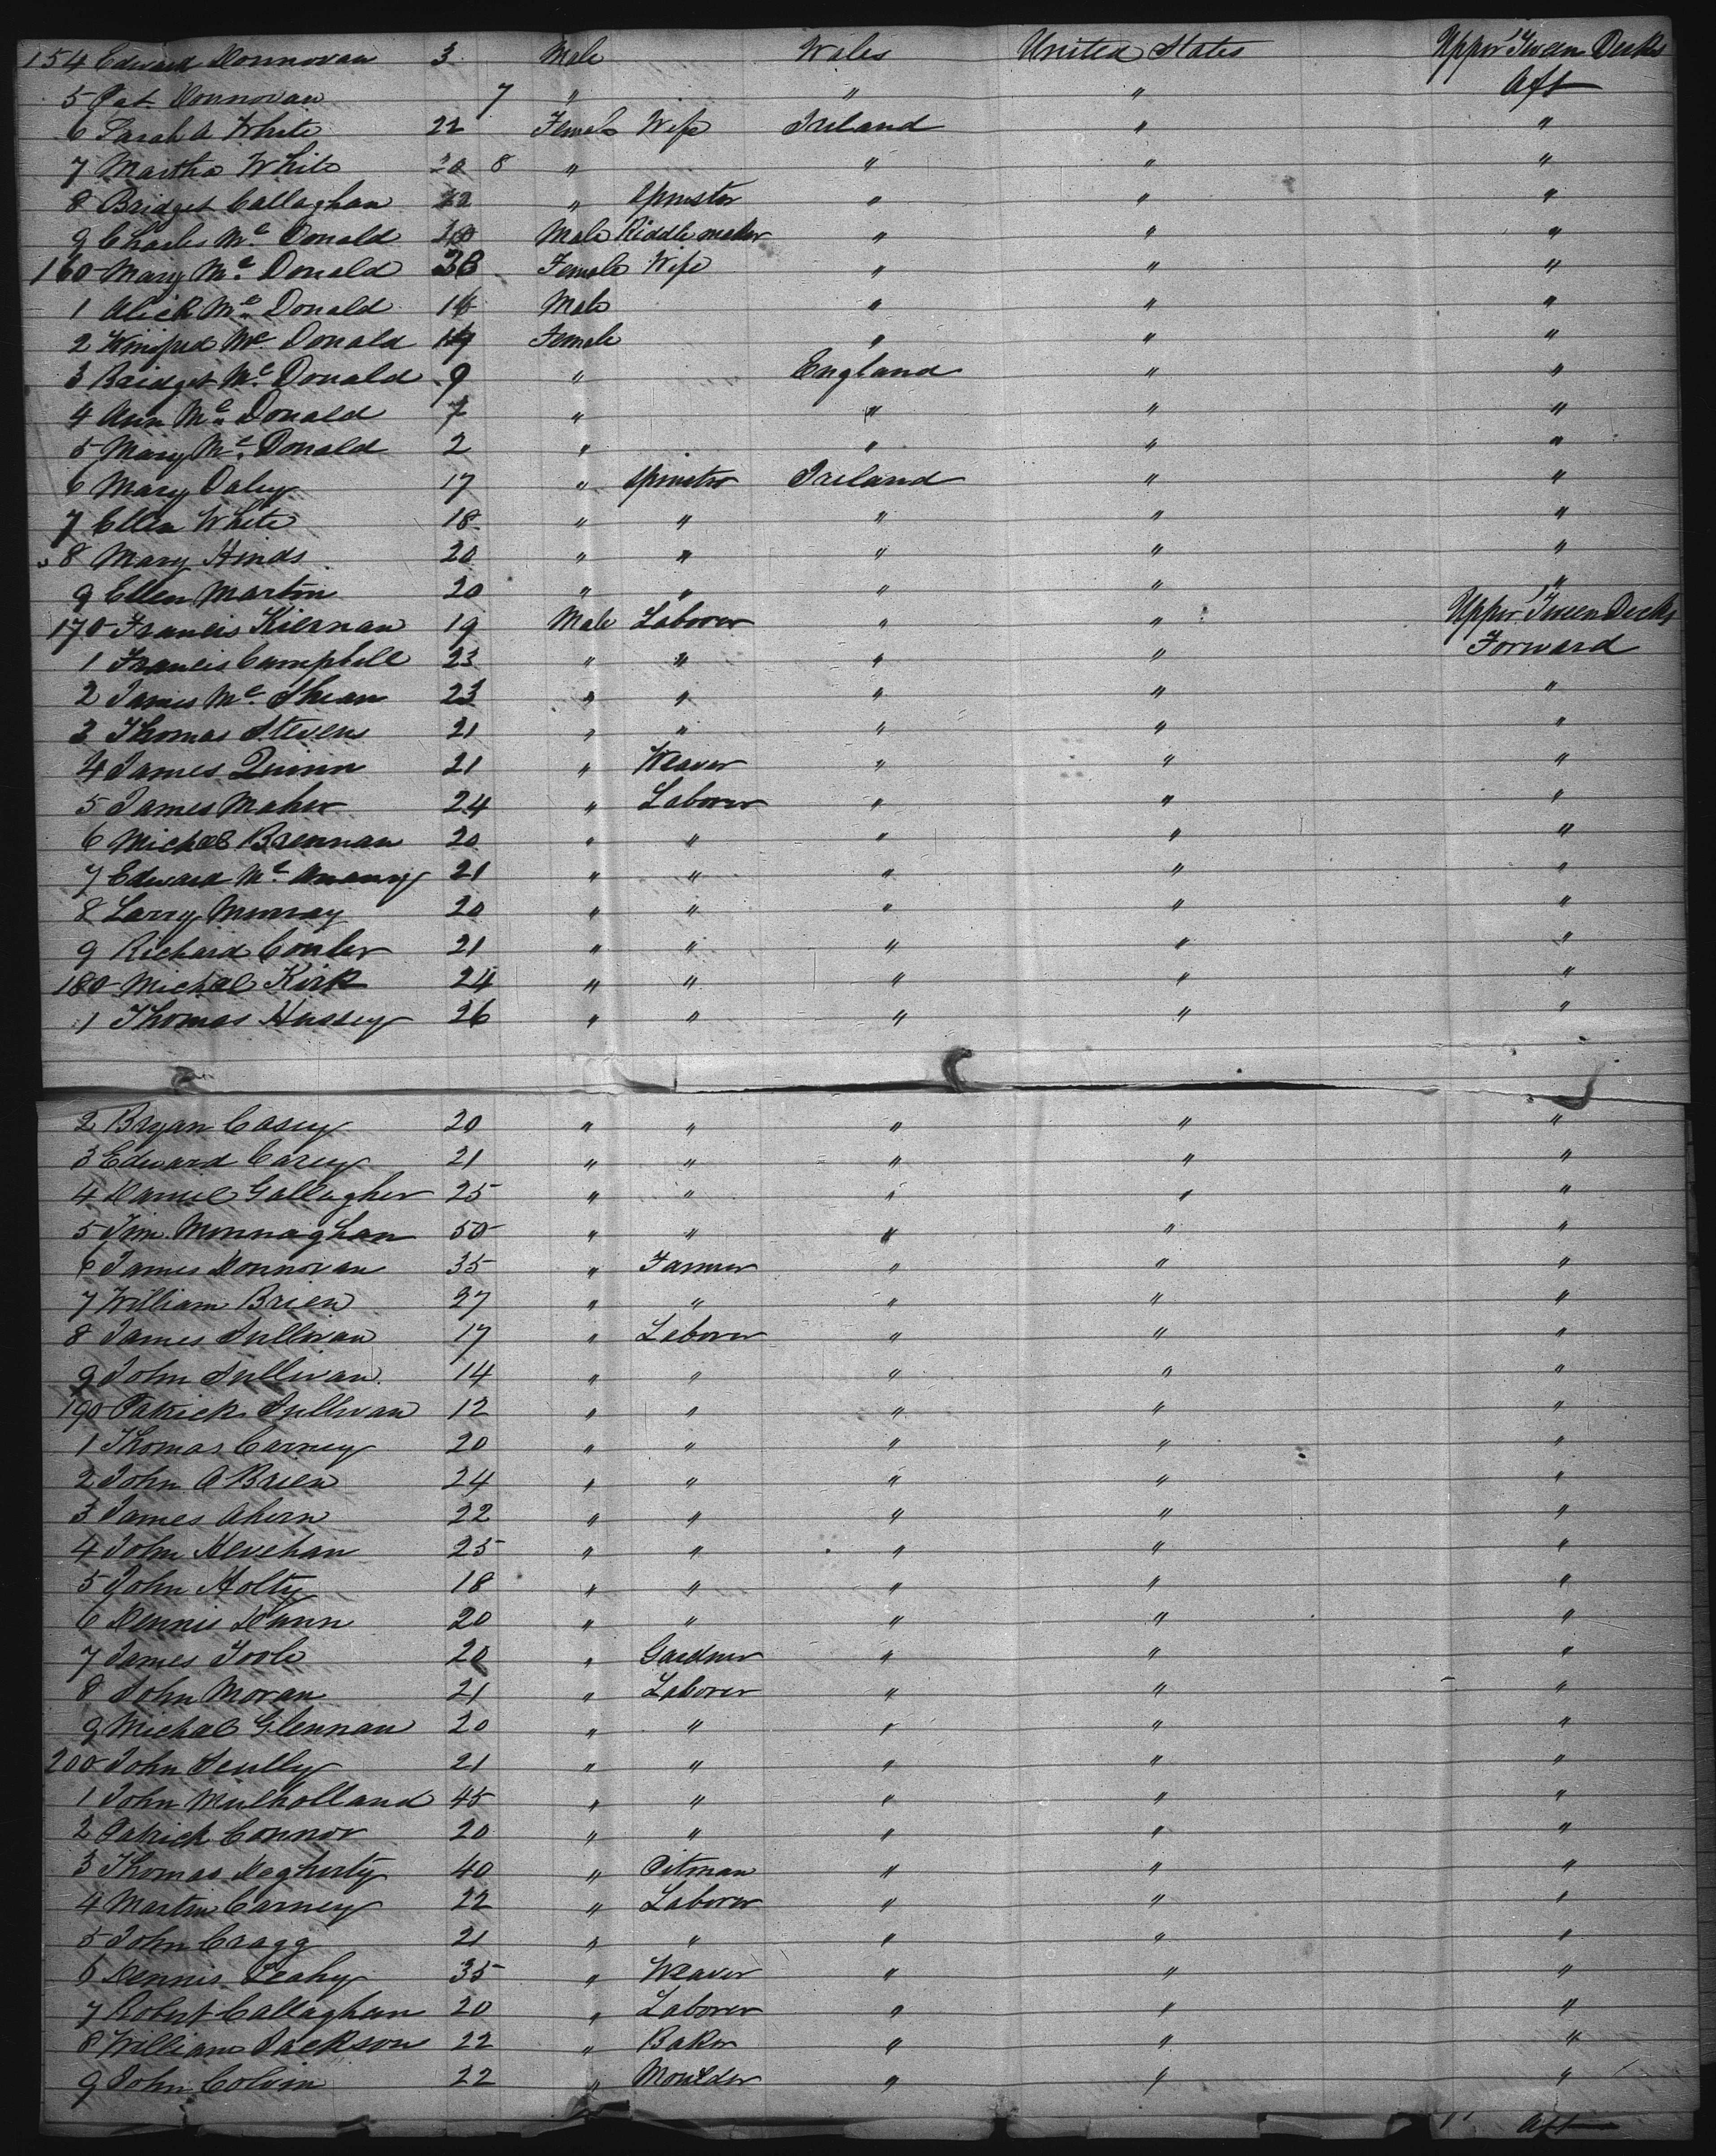 154 Edward Donnovan 3 Male Wales United States Upper 'Tween Decks
5 Pat Donnovan 7 " " " Aft
6 Sarah A White 22 Female Wife Ireland " "
7 Martha White 8 " " " "
8 Bridget Callaghan 22 " Spinster " " "
9 Charles Mc Donald 40 Male Riddle maker " " "
160 Mary Mc Donald 38 Female Wife " " "
1 Alick Mc Donald 16 Male " " "
2 Winifred Mc Donald Female " " "
3 Bridget Mc Donald 9 " England " "
4 Ann Mc Donald 7 " " " "
5 Mary Mc Donald 2 " " " "
6 Mary Daley 17 " Spinster Ireland " "
7 Ellen White 18 " " " " "
8 Mary Hinds 20 " " " " "
9 Ellen Martin 20 " " " " "
170 Francis Kiernan 19 Male Laborer " " Upper 'Tween Decks
1 Francis Campbell 23 " " " " Forward
2 James Mc Shean 23 " " " " "
3 Thomas Stevens 21 " " " " "
4 James Quinn 21 " Weaver " " "
5 James Maher 24 " Laborer " " "
6 Michael Brennan 20 " " " " "
7 Edward Mc Anany 21 " " " " "
8 Larry Murray 20 " " " " "
9 Richard Conler 21 " " " " "
180 Michael Kirk 24 " " " " "
1 Thomas Hussey 26 " " " " "
2 Bryan Casey 20 " " " " "
3 Edward Carey 21 " " " " "
4 Daniel Gallagher 25 " " " " "
5 Jim Monnaghan 50 " " " " "
6 James Donnovan 35 " Farmer " " "
7 William Brien 27 " " " " "
8 James Sullivan 17 " Laborer " " "
9 John Sullivan 14 " " " " "
190 Patrick Sullivan 12 " " " " "
1 Thomas Carney 20 " " " " "
2 John O Brien 24 " " " " "
3 James Ahern 22 " " " " "
4 John Hevehan 25 " " " " "
5 John Holty 18 " " " " "
6 Dennis Dunn 20 " " " " "
7 James Toole 20 " Gardner " " "
8 John Moran 21 " Laborer " " "
9 Michael Glennan 20 " " " " "
200 John Scully 21 " " " " "
1 John Mulholland 45 " " " " "
2 Patrick Connor 20 " " " " "
3 Thomas Dogherty 40 " Pitman " " "
4 Martin Carney 22 " Laborer " " "
5 John Cragg 21 " " " " "
6 Dennis Leahy 35 " Weaver " " "
7 Robert Callaghan 20 " Laborer " " "
8 William Jackson 22 " Baker " " "
9 John Colvin 22 " Moulder " " "
Aft